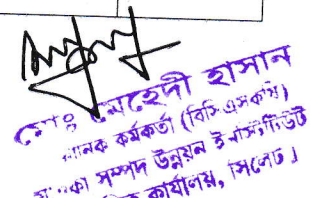 মোঃ মেহেদী হাসান
কর্মকর্তা (বিসিএসকৃষি)
সম্পদ উন্নয়ন ইনস্টিটিউট
কার্যালয়, সিলেট।